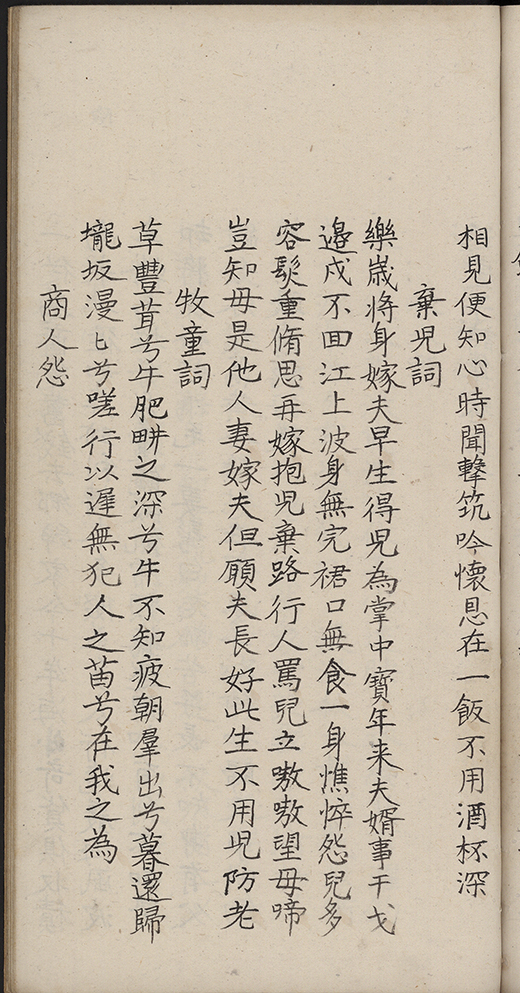 相見便知心時聞擊筑吟懷恩在一飯不用酒杯深
棄兒詞
樂歲將身嫁夫早生得兒為掌中寶年来夫婿事干戈
邉戍不回江上波身無完裙口無食一身憔悴怨兒多
容髮重脩思再嫁抱兒棄路行人罵兒立嗷嗷望母啼
豈知母是他人妻嫁夫但願夫長好此生不用兒防老
牧童詞
草豐茸兮牛肥畊之深兮牛不知疲朝羣出兮暮還歸
壠坂漫〻兮嗟行以遲無犯人之苗兮在我之為
商人怨